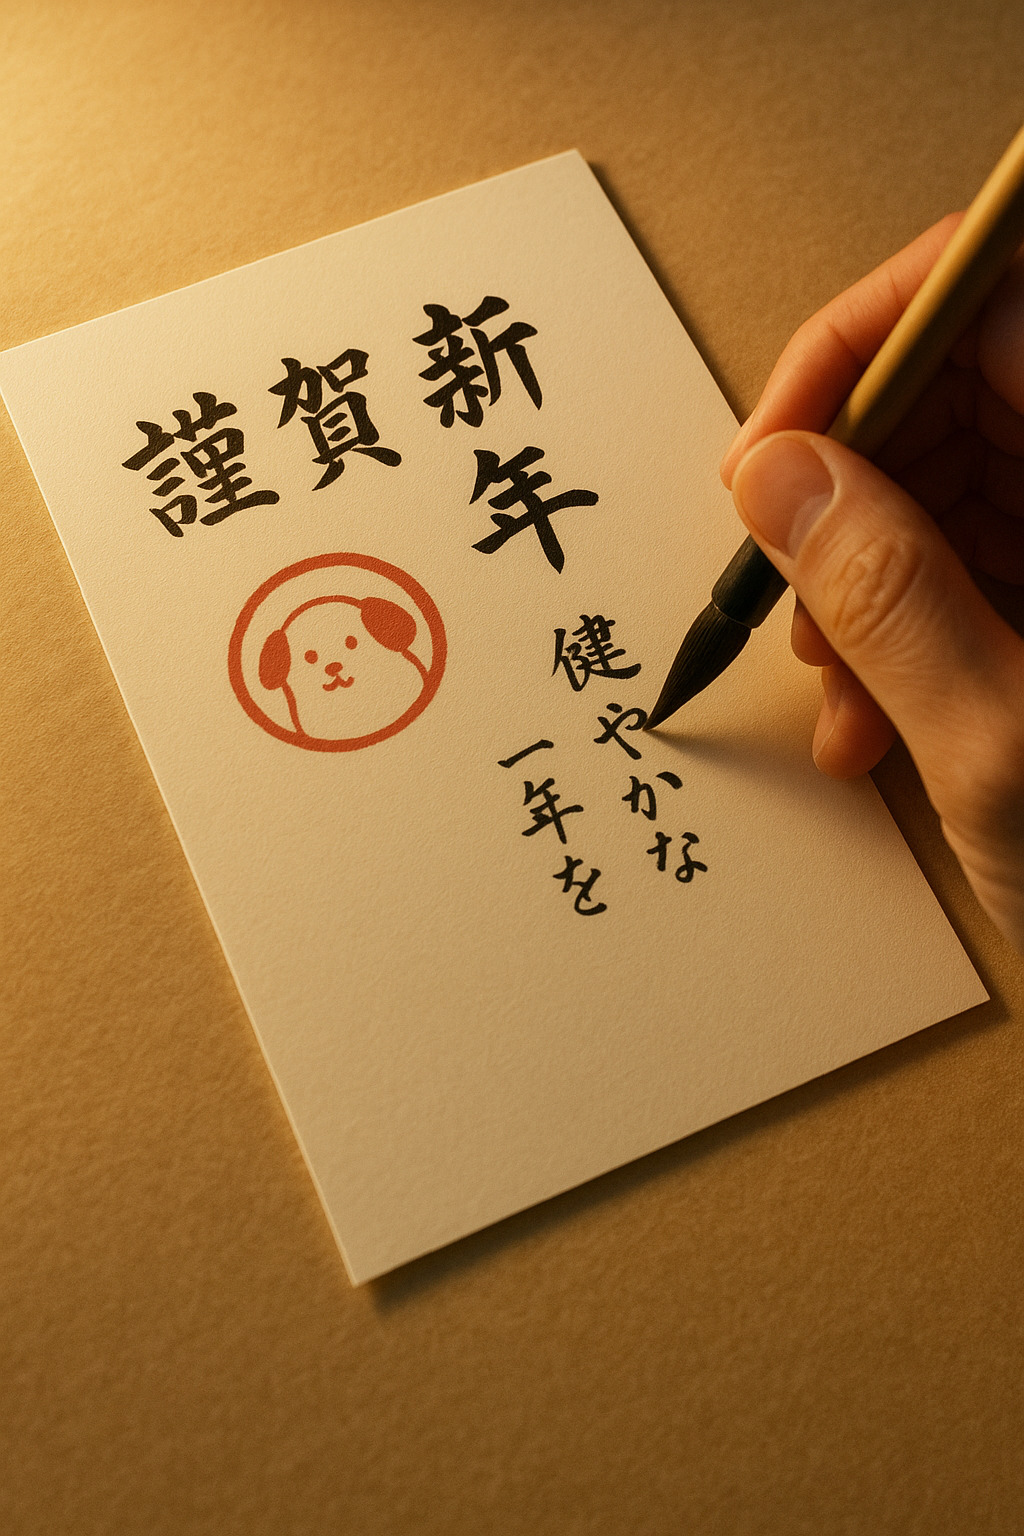 謹賀新年
健やかな
一年を